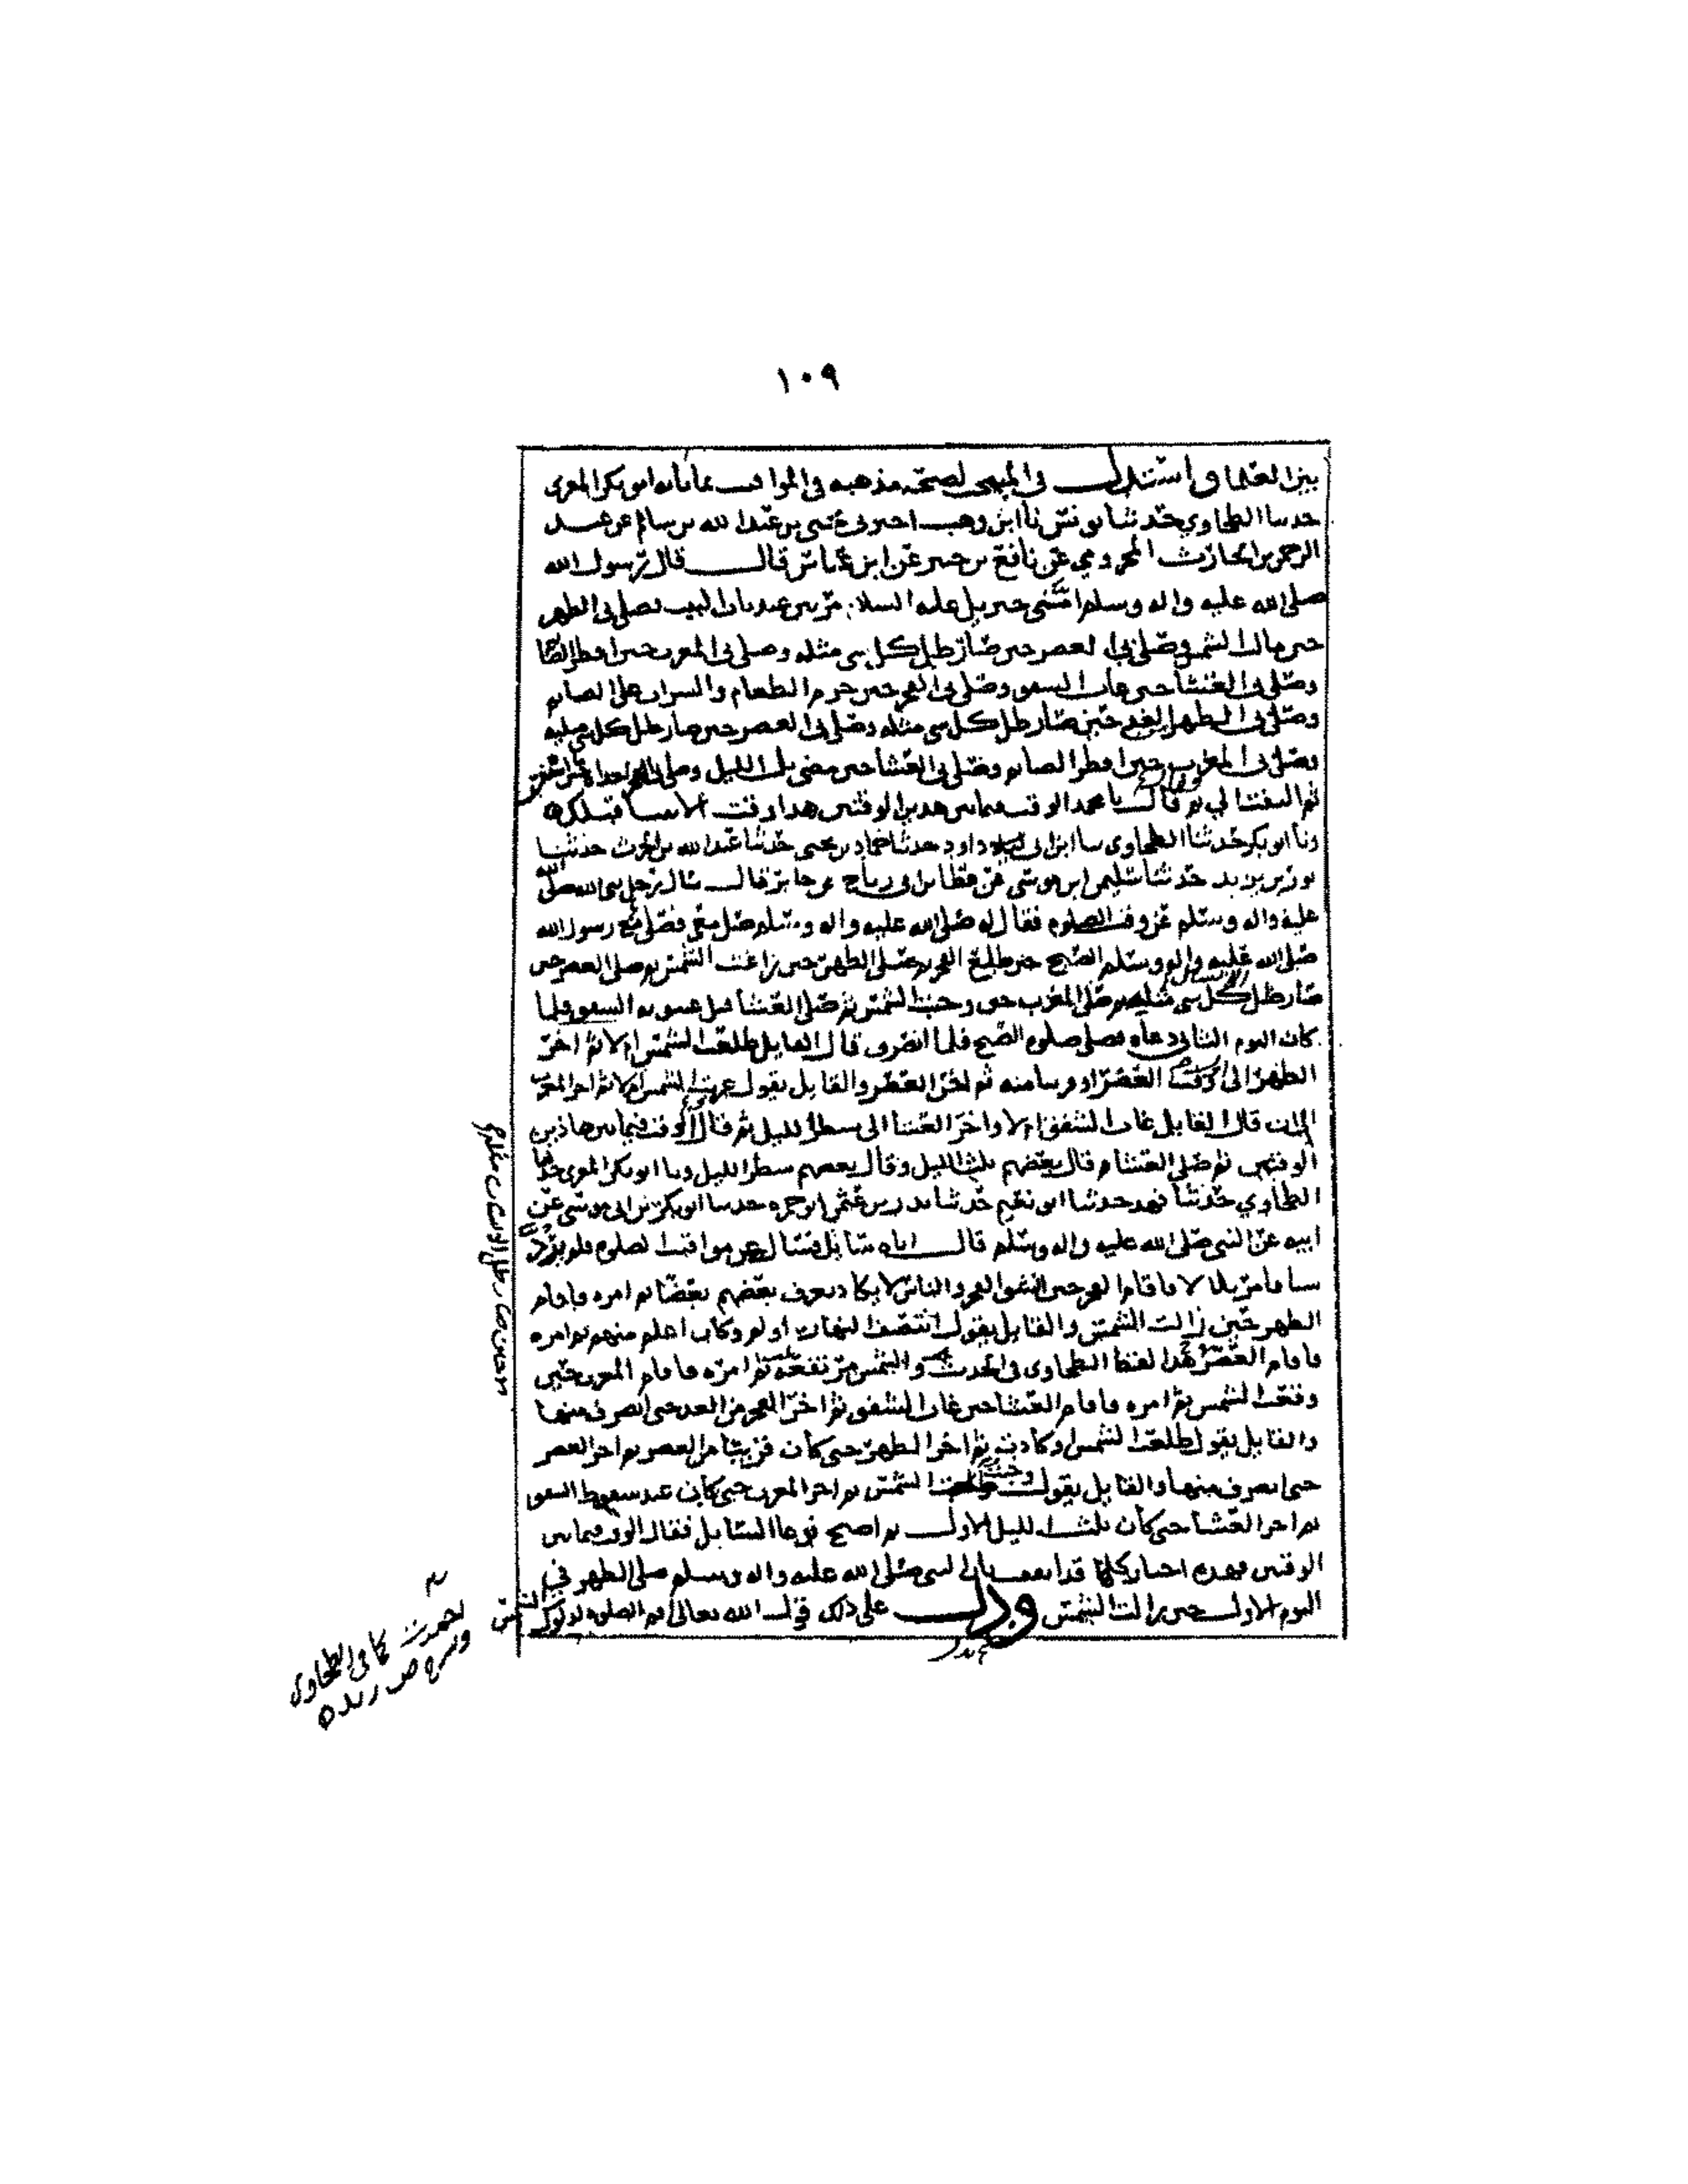 ١٠٩
بين العلما واستدل في لصحة مذهبه في المواقيت بما نابه ابو بكر المقري
حدثنا الطحاوي حدثنا يونس نا ابن وهب اخبرني يحيى بن عبد الله بن سالم عن عبد
الرحمن بن الحارث المخزومي عن نافع بن جبير عن ابن عباس قال قال رسول الله
صلى الله عليه واله وسلم امني جبريل عليه السلام مرتين عند باب البيت فصلى بي الظهر
حين مالت الشمس وصلى بي العصر حين صار ظل كل شي مثله وصلى بي المغرب حين افطر الصائم
وصلى بي العشا حين غاب الشفق وصلى بي الفجر حين حرم الطعام والشراب على الصايم
وصلى بي الظهر الغد حين صار ظل كل شي مثله وصلى بي العصر حين صار ظل كل شي مثليه
وصلى بي المغرب حين افطر الصايم وصلى بي العشا حين مضى ثلث الليل وصلى بي الفجر
ثم التفت الي ثم قال يا محمد الوقت فيما بين هذين الوقتين هذا وقت الانبيا قبلك
ونا ابو بكر حدثنا الطحاوي نا ابن ابي داود حدثنا حماد بن يحيى حدثنا عبد الله بن الحرث حدثنا
ثور بن يزيد حدثنا سليمن ابن موسى عن عطا بن ابي رباح عن جابر قال سال رجل نبي الله صلى الله
عليه واله وسلم عن وقت الصلوه فقال له صلى الله عليه واله وسلم صل معي فصلى مع رسول الله
صلى الله عليه واله وسلم الصبح حين طلع الفجر ثم صلى الظهر حين زاغت الشمس ثم صلى العصر حين
صار ظل كل شي مثليه ثم صلى المغرب حين وجبت الشمس ثم صلى العشا قبل غيبوبة الشفق فلما
كان اليوم الثاني دعاه فصلى صلوه الصبح فلما انصرف قال القايل طلعت الشمس ام لا ثم اخر
الظهر الى وقت العصر او قريبا منه ثم اخر العصر والقايل يقول غربت الشمس ام لا ثم اخر المغرب
الى ان قال القايل غاب الشفق ام لا واخر العشا الى شطر الليل ثم قال الوقت فيما بين هاذين
الوقتين ثم صلى العشا م قال بعضهم ثلث الليل وقال بعضهم شطر الليل ونا ابو بكر المقري حدثنا
الطحاوي حدثنا فهد حدثنا ابو نعيم حدثنا بدر بن عثمن ابو حمزه حدثنا ابو بكر بن ابي موسى عن
ابيه عن النبي صلى الله عليه واله وسلم قال اتاه سايل فسال عن مواقيت الصلوه فلم يرد
شيا فامر بلالا فاقام الفجر حين انشق الفجر والناس لا يكاد يعرف بعضهم بعضا ثم امره فاقام
الظهر حين زالت الشمس والقايل يقول انتصف النهار او لم وكان اعلم منهم ثم امره
فاقام العصر هذا لفظ الطحاوي في الحديث والشمس مرتفعه ثم امره فاقام المغرب حين
وقعت الشمس ثم امره فاقام العشا حين غاب الشفق ثم اخر الفجر من الغد حتى انصرف منها
والقايل يقول طلعت الشمس او كادت ثم اخر الظهر حتى كان قريبا من العصر ثم اخر العصر
حتى انصرف منها والقايل يقول الشمس ثم اخر المغرب حتى كان عند سقوط الشفق
ثم اخر العشا حتى كان ثلث الليل الاول ثم اصبح فدعا السايل فقال الوقت فيما بين
الوقتين فهذه اخبار كلها قد النبي صلى الله عليه واله وسلم صلى الظهر في
اليوم الاول حين زالت الشمس ودل على ذلك قول الله تعالى اقم الصلوه لدلوك الشمس
كما في الطحاوي